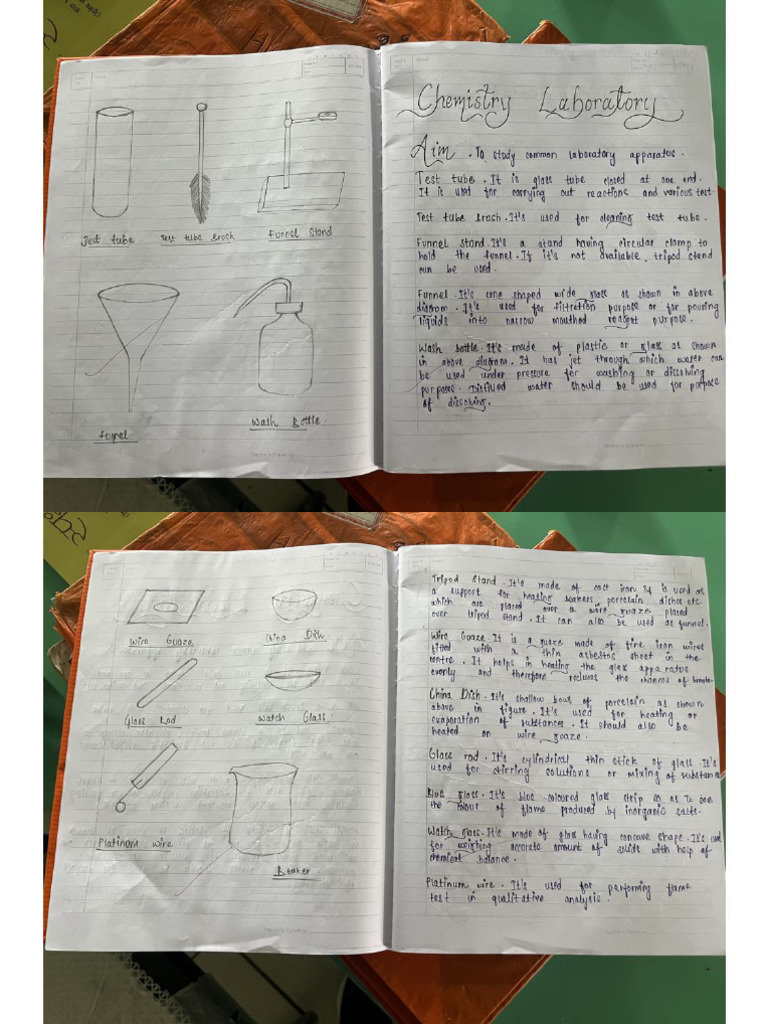 Test tube
Test tube Brosh
Funnel Stand
Funnel
Wash Bottle
Chemistry Laboratory
Aim . To study common laboratory apparatus .
Test tube . It is glass tube closed at one end.
It is used for carrying out reactions and various test
Test tube Brosh . It's used for cleaning test tube .
Funnel stand . It's a stand having circular clamp to
hold the funnel . If it's not available , tripod stand
can be used .
Funnel . It's cone shaped wide glass as shown in above
diagram . It's used for filtration purpose or for pouring
liquids into narrow mouthed reagent purpose .
Wash bottle . It's made of plastic or glass as shown
in above diagram . It has jet through which water can
be used under pressure for washing or dissolving
purpose . Distilled water should be used for porpose
of dissolving .
Wire Guaze
China Dish
Glass Rod
Watch Glass
Platinum wire
Beaker
Tripod Stand . It's made of cast iron It is used as
a support for heating beakers, porcelain dishes etc.
which are placed over a wire guaze placed
over tripod stand . It can also be used as funnel .
Wire Guaze . It is a guaze made of fine iron wires
fitted with a thin asbestos sheet in the
centre . It helps in heating the glass apparatus
evenly and therefore reduces the chances of
China Dish . It's shallow bowl of porcelain as shown
above in figure . It's used for heating or
evaporation of substances . It should also be
heated on wire guaze .
Glass rod . It's cylindrical thin stick of glass . It's
used for stirring solutions or mixing of substance
Blue Glass . It's blue coloured glass strip so as to see
the colour of flame produced by inorganic salts .
Watch glass . It's made of glass having concave shape . It's use
for weighing accurate amount of solids with help of
chemical balance .
Platinum wire . It's used for performing flame
test in qualitative analysis .